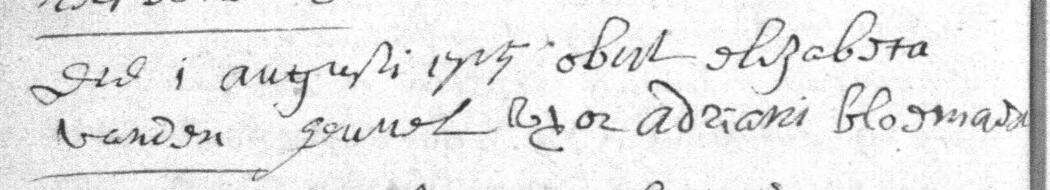 Die 1 augusti 1715 obiit elizabeta
vanden heuvel uxor adriani bloemaers